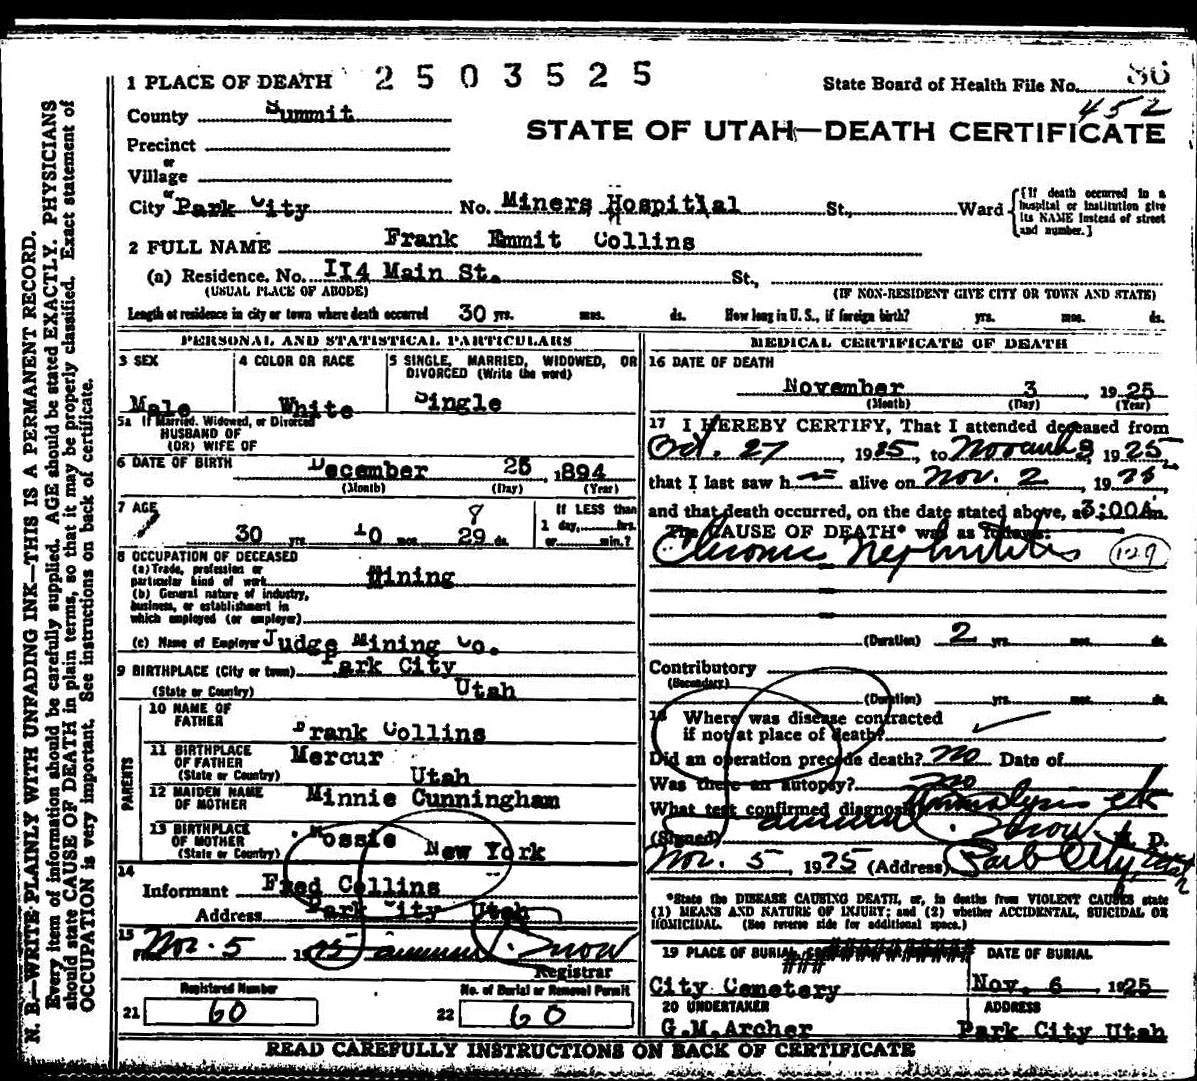 1 PLACE OF DEATH 2503525 State Board of Health File No. 86
452
County Summit
STATE OF UTAH—DEATH CERTIFICATE
Precinct
or
Village
or
City Park City No. Miners Hospitial St., Ward {[If death occurred in a hospital or institution give its NAME instead of street and number.]
2 FULL NAME Frank Emmit Collins
(a) Residence. No. II4 Main St. St.,
(USUAL PLACE OF ABODE) (IF NON-RESIDENT GIVE CITY OR TOWN AND STATE)
Length of residence in city or town where death occurred 30 yrs. mos. ds. How long in U. S., if foreign birth? yrs. mos. ds.
PERSONAL AND STATISTICAL PARTICULARS
3 SEX
Male
4 COLOR OR RACE
White
5 SINGLE, MARRIED, WIDOWED, OR
DIVORCED (Write the word)
Single
5a If Married, Widowed, or Divorced
HUSBAND OF
(OR) WIFE OF
6 DATE OF BIRTH December 25 1894
(Month) (Day) (Year)
7 AGE 8 If LESS than
30 yrs. 10 mos. 29 ds. 1 day, hrs.
or min.?
8 OCCUPATION OF DECEASED
(a) Trade, profession or
particular kind of work Mining
(b) General nature of industry,
business, or establishment in
which employed (or employer)
(c) Name of Employer Judge Mining Co.
9 BIRTHPLACE (City or town) Park City
(State or Country) Utah
PARENTS
10 NAME OF
FATHER Frank Collins
11 BIRTHPLACE
OF FATHER Mercur
(State or Country) Utah
12 MAIDEN NAME
OF MOTHER Minnie Cunningham
13 BIRTHPLACE
OF MOTHER
(State or Country) New York
14
Informant Fred Collins
Address Park City Utah
15
Nov. 5 1925 Snow
Registrar
Registered Number No. of Burial or Removal Permit
21 60 22 60
MEDICAL CERTIFICATE OF DEATH
16 DATE OF DEATH
November 3 1925
(Month) (Day) (Year)
17 I HEREBY CERTIFY, That I attended deceased from
Oct. 27, 1925, to 3, 1925,
that I last saw h alive on Nov. 2, 1925
and that death occurred, on the date stated above, at 3:00A.m.
The CAUSE OF DEATH* was as follows:
Chronic Nephritis 129
(Duration) 2 yrs. mos. ds.
Contributory
(Secondary)
(Duration) yrs. mos. ds.
18 Where was disease contracted
if not at place of death?
Did an operation precede death? no Date of
Was there an autopsy? no
What test confirmed diagnosis
(Signed) Snow M. D.
Nov. 5, 1925 (Address) Park City, Utah
*State the DISEASE CAUSING DEATH, or, in deaths from VIOLENT CAUSES state
(1) MEANS AND NATURE OF INJURY; and (2) whether ACCIDENTAL, SUICIDAL OR
HOMICIDAL. (See reverse side for additional space.)
19 PLACE OF BURIAL DATE OF BURIAL
City Cemetery Nov. 6 1925
20 UNDERTAKER ADDRESS
G.M.Archer Park City Utah
READ CAREFULLY INSTRUCTIONS ON BACK OF CERTIFICATE
N. B.—WRITE PLAINLY WITH UNFADING INK—THIS IS A PERMANENT RECORD.
Every item of information should be carefully supplied. AGE should be stated EXACTLY. PHYSICIANS
should state CAUSE OF DEATH in plain terms, so that it may be properly classified. Exact statement of
OCCUPATION is very important. See instructions on back of certificate.